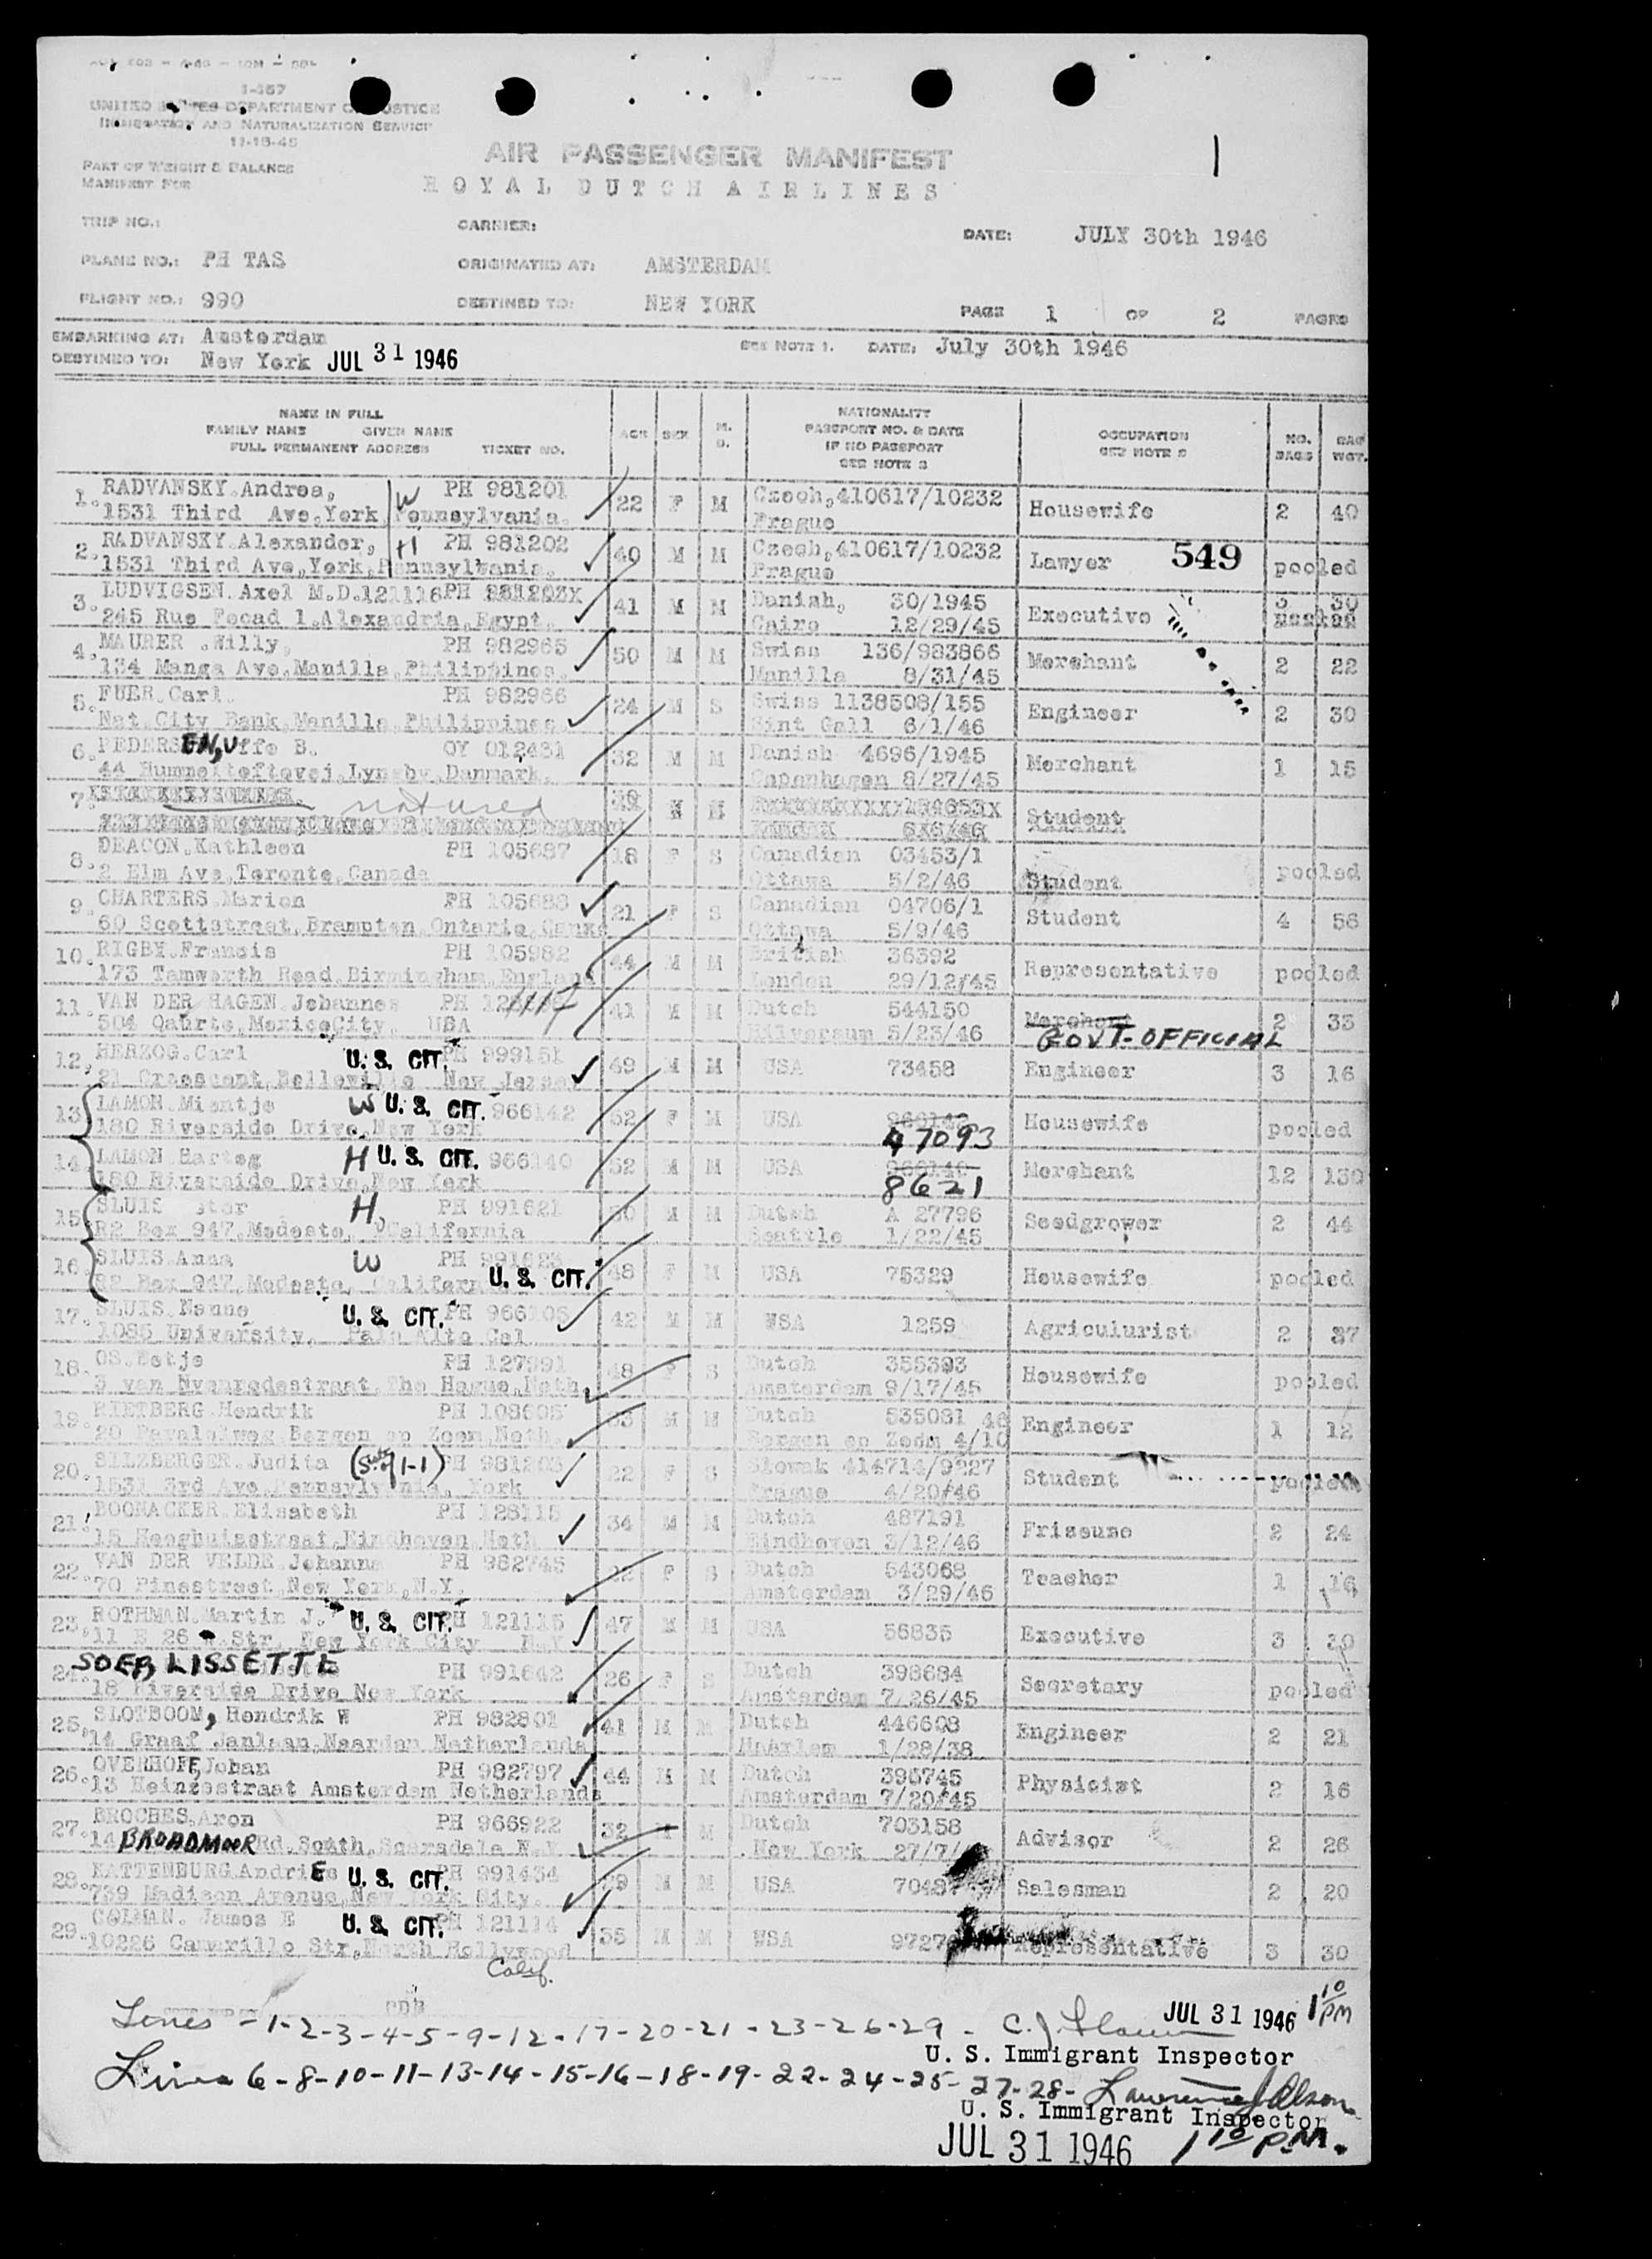 I-467
UNITED STATES DEPARTMENT OF JUSTICE
IMMIGRATION AND NATURALIZATION SERVICE
11-18-45
PART OF WEIGHT & BALANCE
MANIFEST FOR
AIR PASSENGER MANIFEST
ROYAL DUTCH AIRLINES
TRIP NO.: CARRIER: DATE: JULY 30th 1946
PLANE NO.: PH TAS ORIGINATED AT: AMSTERDAM
FLIGHT NO.: 990 DESTINED TO: NEW YORK PAGE 1 OF 2 PAGES
EMBARKING AT: Amsterdam SEE NOTE 1. DATE: July 30th 1946
DESTINED TO: New York JUL 31 1946
NAME IN FULL
FAMILY NAME GIVEN NAME
FULL PERMANENT ADDRESS TICKET NO. AGE SEX M. D. NATIONALITY PASSPORT NO. & DATE IF NO PASSPORT SEE NOTE 3 OCCUPATION SEE NOTE 2 NO. BAGS BAG WGT.
1. RADVANSKY.Andrea, W PH 981201 22 F M Czech,410617/10232 Housewife 2 40
1531 Third Ave,York,Pennsylvania. Prague
2. RADVANSKY.Alexander, H PH 981202 40 M M Czech,410617/10232 Lawyer 549 pooled
1531 Third Ave,York,Pennsylvania. Prague
3. LUDVIGSEN.Axel M.D.121116PH 41 M M Danish, 30/1945 Executive 3 30
245 Rue Fecad 1.Alexandria,Egypt. Cairo 12/29/45
4. MAURER .Willy, PH 982965 50 M M Swiss 136/983866 Merchant 2 22
134 Manga Ave,Manilla,Philippines. Manilla 8/31/45
5. FUER.Carl. PH 982966 24 M S Swiss 1138508/155 Engineer 2 30
Nat.City Bank,Manilla,Philippines Sint Gall 6/1/46
6. PEDERSEN, Uffe B. OY 012431 32 M M Danish 4696/1945 Merchant 1 15
44 Lyngby,Danmark. Copenhagen 8/27/45
7. not used M M Student
8. DEACON.Kathleen PH 105687 18 F S Canadian 03453/1 Student pooled
2 Elm Ave,Toronto,Canada Ottawa 5/2/46
9. CHARTERS.Marion PH 105688 21 F S Canadian 04706/1 Student 4 56
60 Scottstreet,Brampton,Ontario,Canada Ottawa 5/9/46
10. RIGBY.Francis PH 105982 44 M M British 36392 Representative pooled
173 Tamworth Road,Birmingham,England London 29/12/45
11. VAN DER HAGEN.Johannes PH 41 M M Dutch 544150 Merchant 2 33
504 Qaurto,MexicoCity, USA Hilversum 5/23/46 GOVT-OFFICIAL
12, HERZOG.Carl U. S. CIT. PH 999151 49 M M USA 73458 Engineer 3 16
21 Crescent,Belleville New Jersey
13. LAMON.Mientje W U. S. CIT. 966142 52 F M USA 966142 Housewife pooled
180 Riverside Drive,New York 47093
14. LAMON.Hartog H U. S. CIT. 966140 52 M M USA 966140 Merchant 12 130
180 Riverside Drive,New York 8621
15. SLUIS H. PH 991621 50 M M Dutch A 27796 Seedgrower 2 44
R2 Box 947,Modesto, California Seattle 1/22/45
16. SLUIS.Anna W PH 48 F M USA 75329 Housewife pooled
R2 Box 947,Modesto, California U. S. CIT.
17. SLUIS.Nanne U. S. CIT. PH 966105 42 M M USA 1259 Agriculurist 2 27
1085 University, Palo Alto Cal
18. OS.Betje PH 127991 48 F S Dutch 356393 Housewife pooled
3 van Nyenrodestraat,The Hague,Neth. Amsterdam 9/17/45
19. RIETBERG.Hendrik PH 108605 33 M M Dutch 535081 46 Engineer 1 12
20 Bergen op Zoom,Neth. Bergen op Zoom 4/10
20. SILZBERGER.Judita PH 981203 22 F S Slowak 414714/9227 Student pooled
1531 3rd Ave,Pennsylvania, York Prague 4/20/46
21. BOONACKER.Elisabeth PH 128115 34 M M Dutch 487191 Friseuse 2 24
15 Hooghuisstraat,Eindhoven,Neth Eindhoven 3/12/46
22. VAN DER VELDE.Johanna PH 982745 F S Dutch 543068 Teacher 1 16
70 Pinestreet,New York,N.Y. Amsterdam 3/29/46
23. ROTHMAN.Martin J. U. S. CIT. PH 121115 47 M M USA 56835 Executive 3
11 E 26 Str, New York City N.Y
24. SOEB, LISSETTE PH 991642 26 F S Dutch 398684 Secretary pooled
18 Riverside Drive New York Amsterdam 7/26/45
25. SLOTBOOM, Hendrik W PH 982801 41 M M Dutch 446608 Engineer 2 21
14 Graaf Janlaan,Naarden Netherlands Haarlem 1/28/38
26. OVERHOFF,Johan PH 982797 44 M M Dutch 395745 Physicist 2 16
13 Heinzestraat Amsterdam Netherlands Amsterdam 7/20/45
27. BROCHES,Aron PH 966922 32 M M Dutch 703158 Advisor 2 26
14 BROADMOOR Rd,South,Scarsdale N.Y. New York
28. KATTENBURG.Andries U. S. CIT. PH 991434 M M USA Salesman 2 20
739 Madison Avenue,New York City.
29. COLMAN. James E U. S. CIT. PH 121114 35 M M USA Representative 3 30
10226 Camarillo Str,North Hollywood
Calif.
Lines - 1-2-3-4-5-9-12-17-20-21-23-26-29 - JUL 31 1946 1 10 PM
U. S. Immigrant Inspector
Lines 6-8-10-11-13-14-15-16-18-19-22-24-25-27-28- Lawrence
U. S. Immigrant Inspector
JUL 31 1946 1 10 P.M.